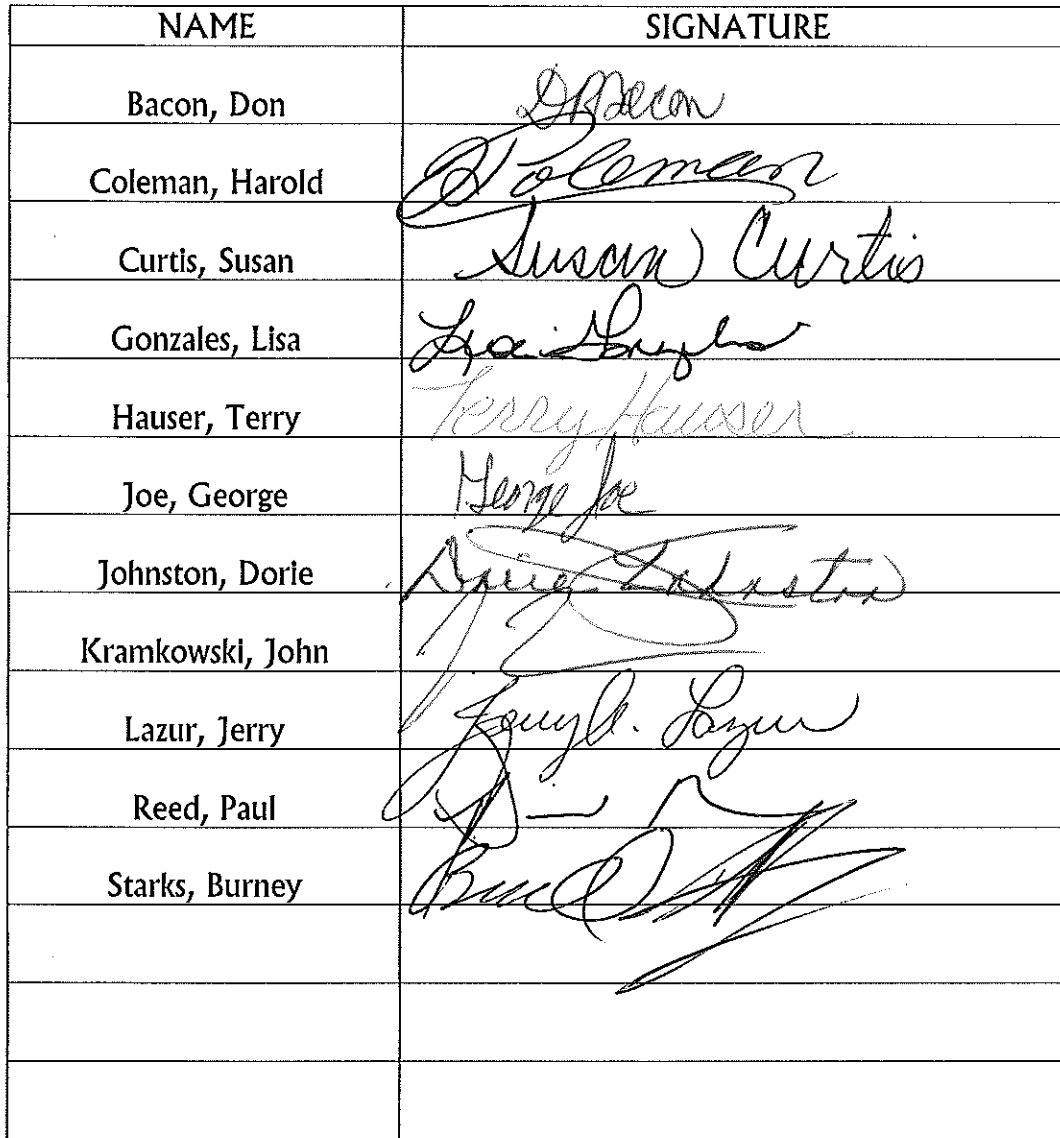 NAME SIGNATURE
Bacon, Don DBacon
Coleman, Harold HColeman
Curtis, Susan Susan Curtis
Gonzales, Lisa Lisa Gonzales
Hauser, Terry Terry Hauser
Joe, George George Joe
Johnston, Dorie Dorie Johnston
Kramkowski, John
Lazur, Jerry Jerry A. Lazur
Reed, Paul
Starks, Burney